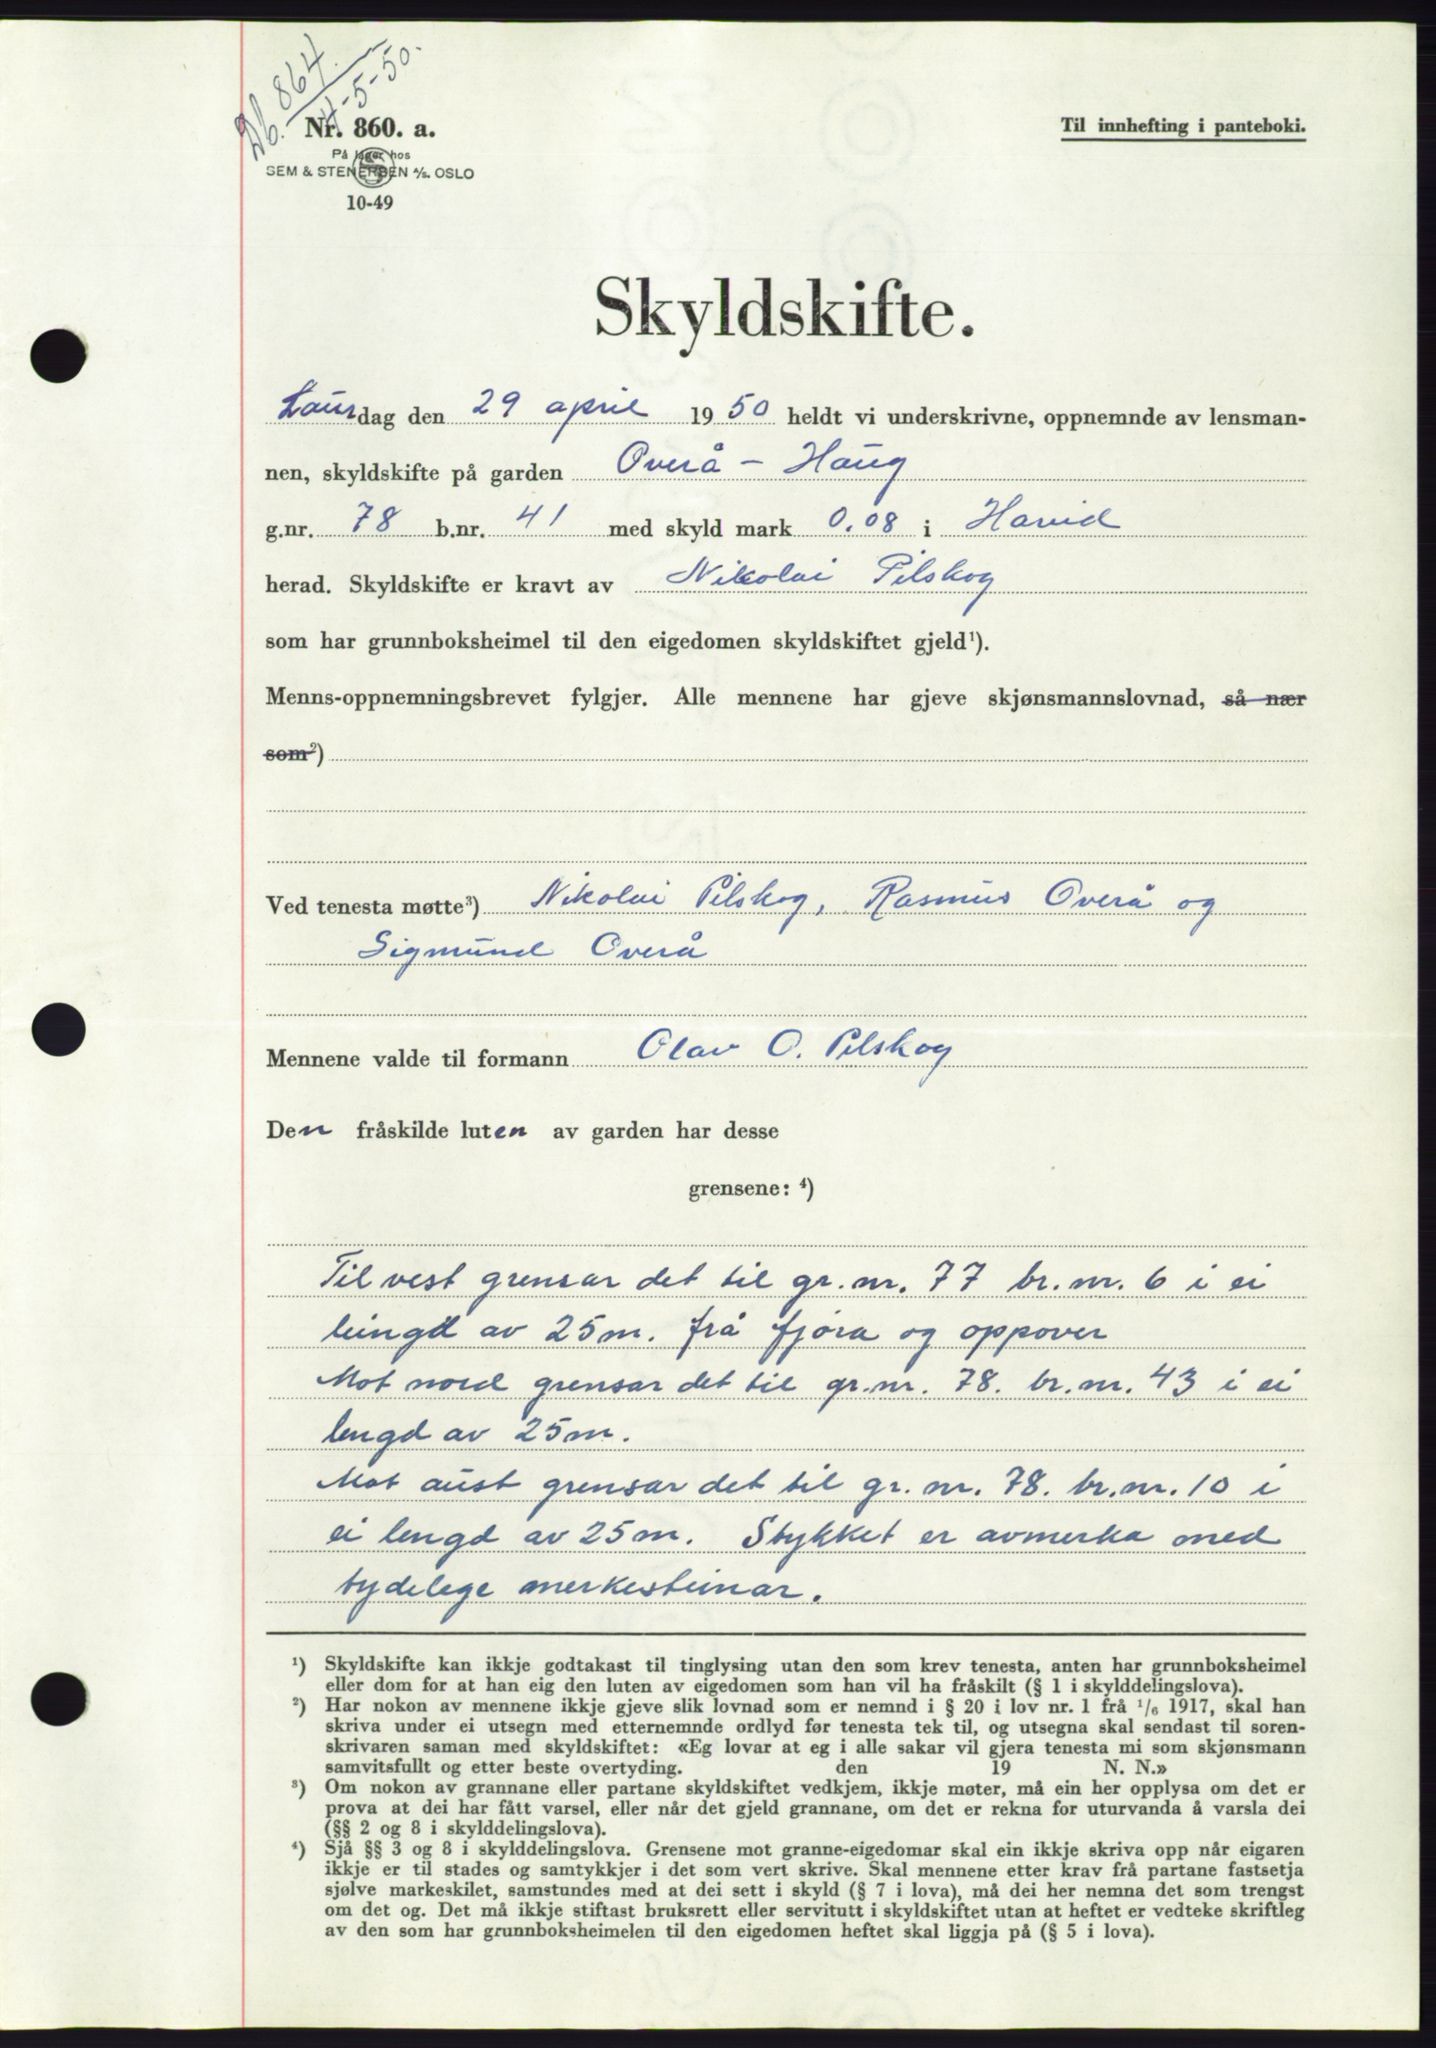 Db. 864
4-5-50.
Nr. 860. a.
På lager hos
SEM & STENERSEN A/S. OSLO
10-49
Til innhefting i panteboki.
Skyldskifte.
Laurdag den 29 april 1950 heldt vi underskrivne, oppnemnde av lensman-
nen, skyldskifte på garden Overå - Haug
g.nr. 78 b.nr. 41 med skyld mark 0.08 i Hareid
herad. Skyldskifte er kravt av Nikolai Pilskog
som har grunnboksheimel til den eigedomen skyldskiftet gjeld¹).
Menns-oppnemningsbrevet fylgjer. Alle mennene har gjeve skjønsmannslovnad, så nær
som²)
Ved tenesta møtte³) Nikolai Pilskog, Rasmus Overå og
Sigmund Overå
Mennene valde til formann Olav O. Pilskog
Den fråskilde luten av garden har desse
grensene: ⁴)
Til vest grensar det til gr.nr. 77 br.nr. 6 i ei
leingd av 25m. frå fjøra og oppover
Mot nord grensar det til gr.nr. 78. br.nr. 43 i ei
lengd av 25m.
Mot aust grensar det til gr.nr. 78. br.nr. 10 i
ei lengd av 25m. Stykket er avmerka med
tydelege merkesteinar.
¹) Skyldskifte kan ikkje godtakast til tinglysing utan den som krev tenesta, anten har grunnboksheimel
eller dom for at han eig den luten av eigedomen som han vil ha fråskilt (§ 1 i skylddelingslova).
²) Har nokon av mennene ikkje gjeve slik lovnad som er nemnd i § 20 i lov nr. 1 frå ¹/₆ 1917, skal han
skriva under ei utsegn med etternemnde ordlyd før tenesta tek til, og utsegna skal sendast til soren-
skrivaren saman med skyldskiftet: «Eg lovar at eg i alle sakar vil gjera tenesta mi som skjønsmann
samvitsfullt og etter beste overtyding. den 19 N. N.»
³) Om nokon av grannane eller partane skyldskiftet vedkjem, ikkje møter, må ein her opplysa om det er
prova at dei har fått varsel, eller når det gjeld grannane, om det er rekna for uturvanda å varsla dei
(§§ 2 og 8 i skylddelingslova).
⁴) Sjå §§ 3 og 8 i skylddelingslova. Grensene mot granne-eigedomar skal ein ikkje skriva opp når eigaren
ikkje er til stades og samtykkjer i det som vert skrive. Skal mennene etter krav frå partane fastsetja
sjølve markeskilet, samstundes med at dei sett i skyld (§ 7 i lova), må dei her nemna det som trengst
om det og. Det må ikkje stiftast bruksrett eller servitutt i skyldskiftet utan at heftet er vedteke skriftleg
av den som har grunnboksheimelen til den eigedomen heftet skal liggja på (§ 5 i lova).